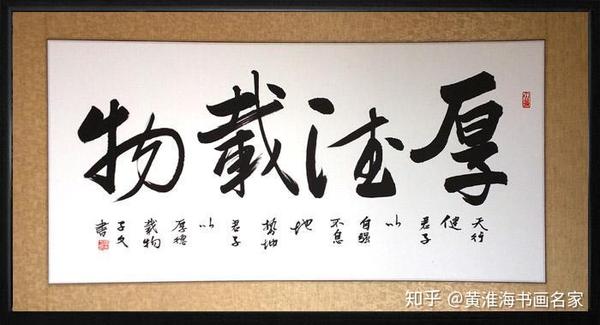 厚德載物
天行健君子以自強不息地勢坤君子以厚德載物
書
知乎 @黄淮海书画名家